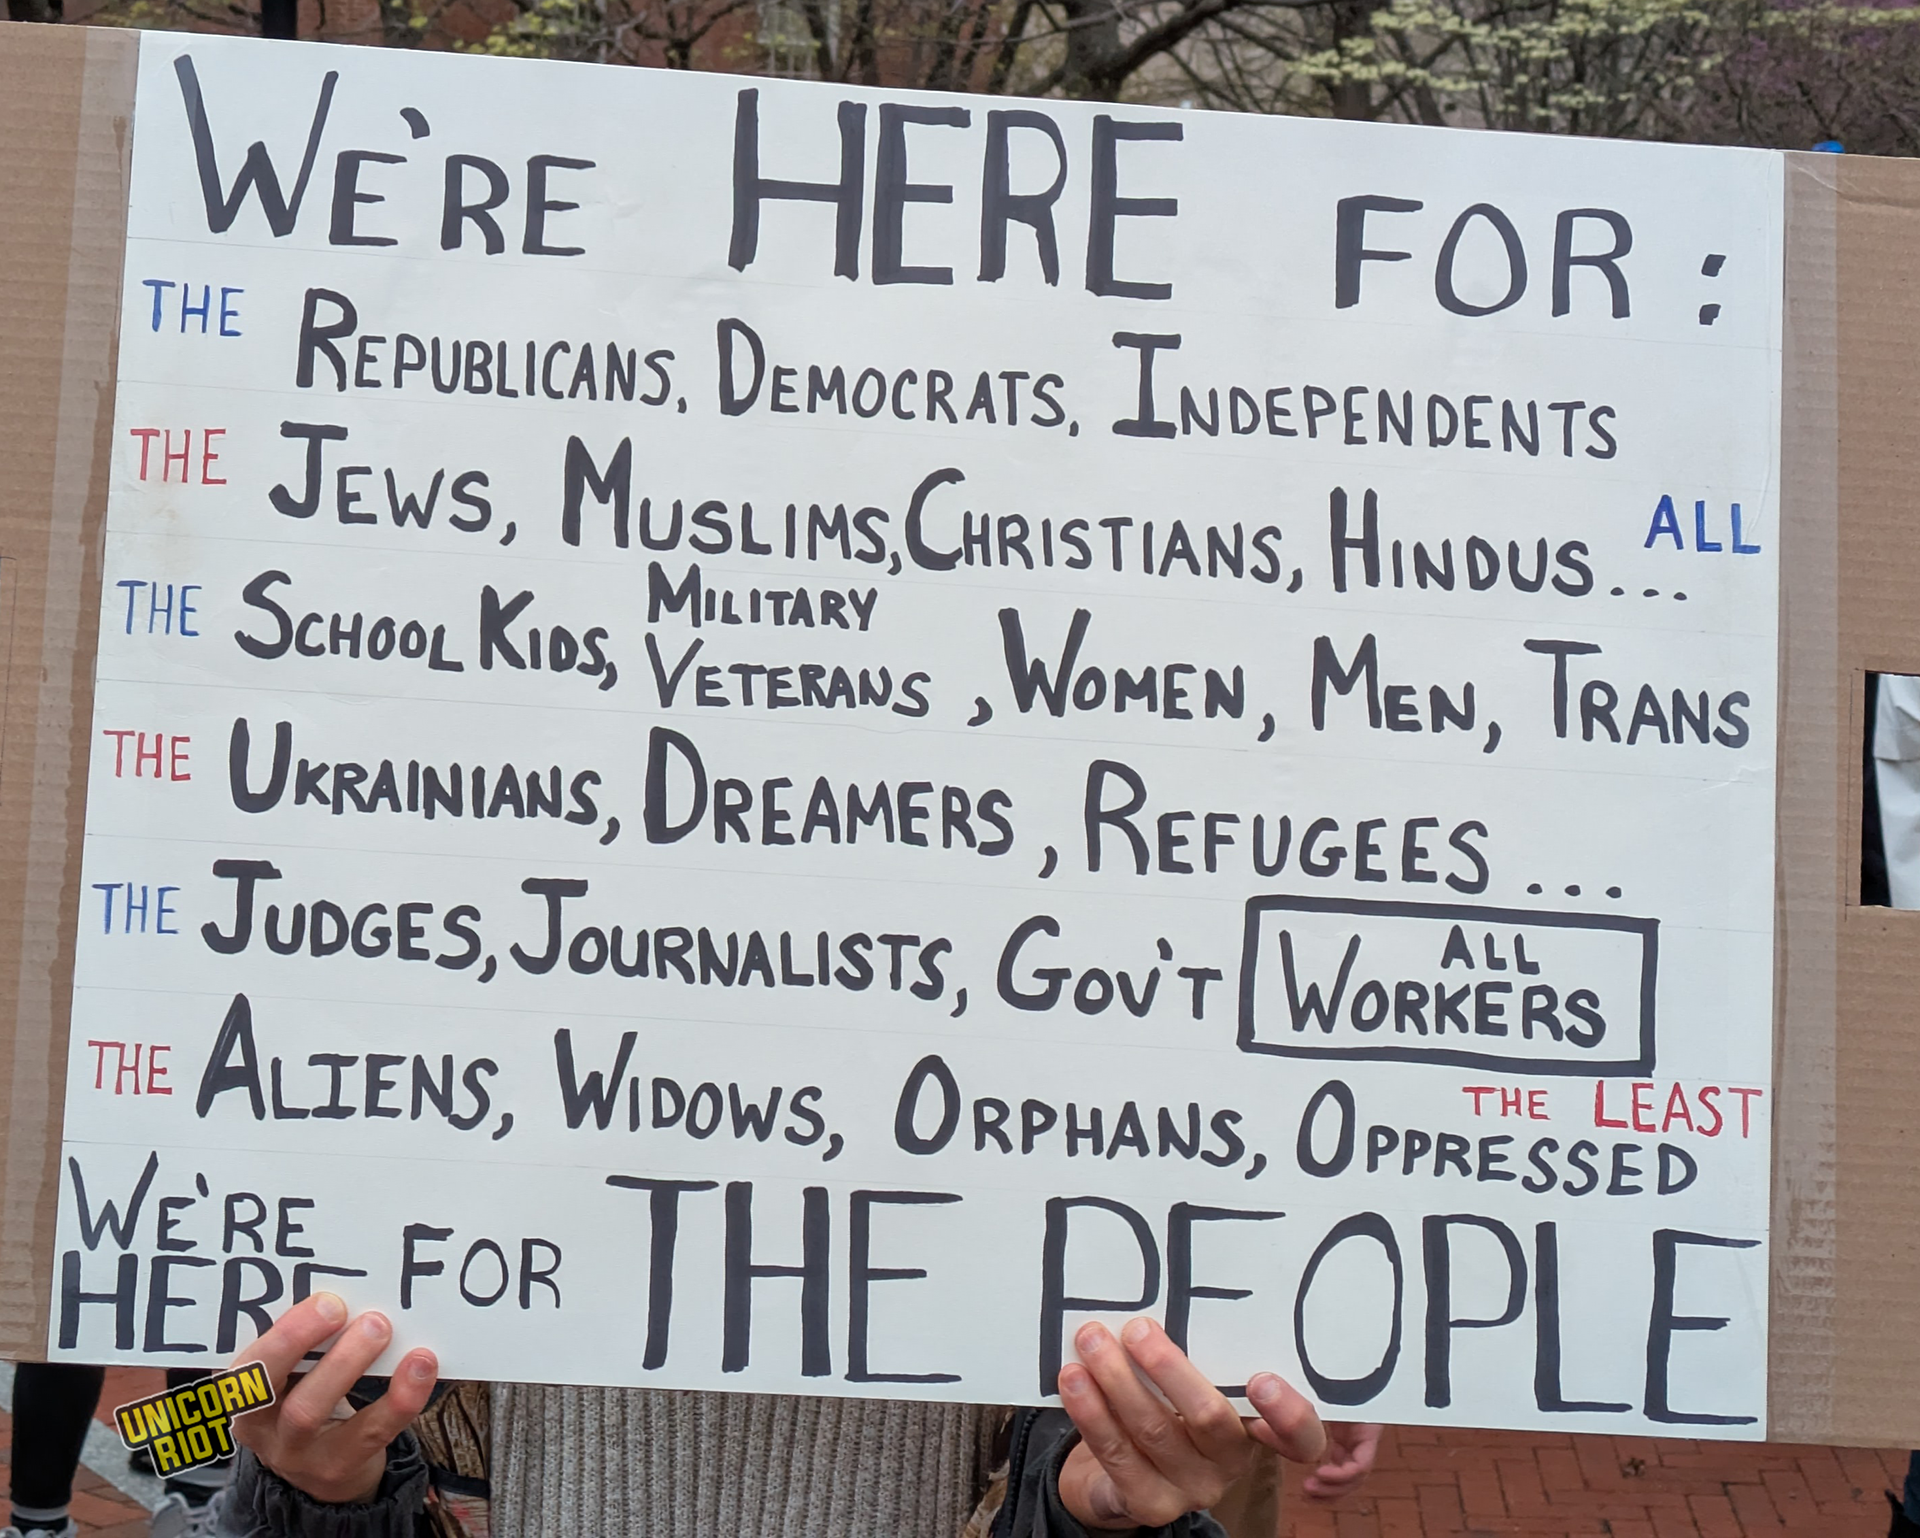 WE'RE HERE FOR:
THE REPUBLICANS, DEMOCRATS, INDEPENDENTS
THE JEWS, MUSLIMS, CHRISTIANS, HINDUS... ALL
THE SCHOOL KIDS, MILITARY VETERANS, WOMEN, MEN, TRANS
THE UKRAINIANS, DREAMERS, REFUGEES...
THE JUDGES, JOURNALISTS, GOV'T ALL WORKERS
THE ALIENS, WIDOWS, ORPHANS, OPPRESSED THE LEAST
WE'RE HERE FOR THE PEOPLE
UNICORN
RIOT